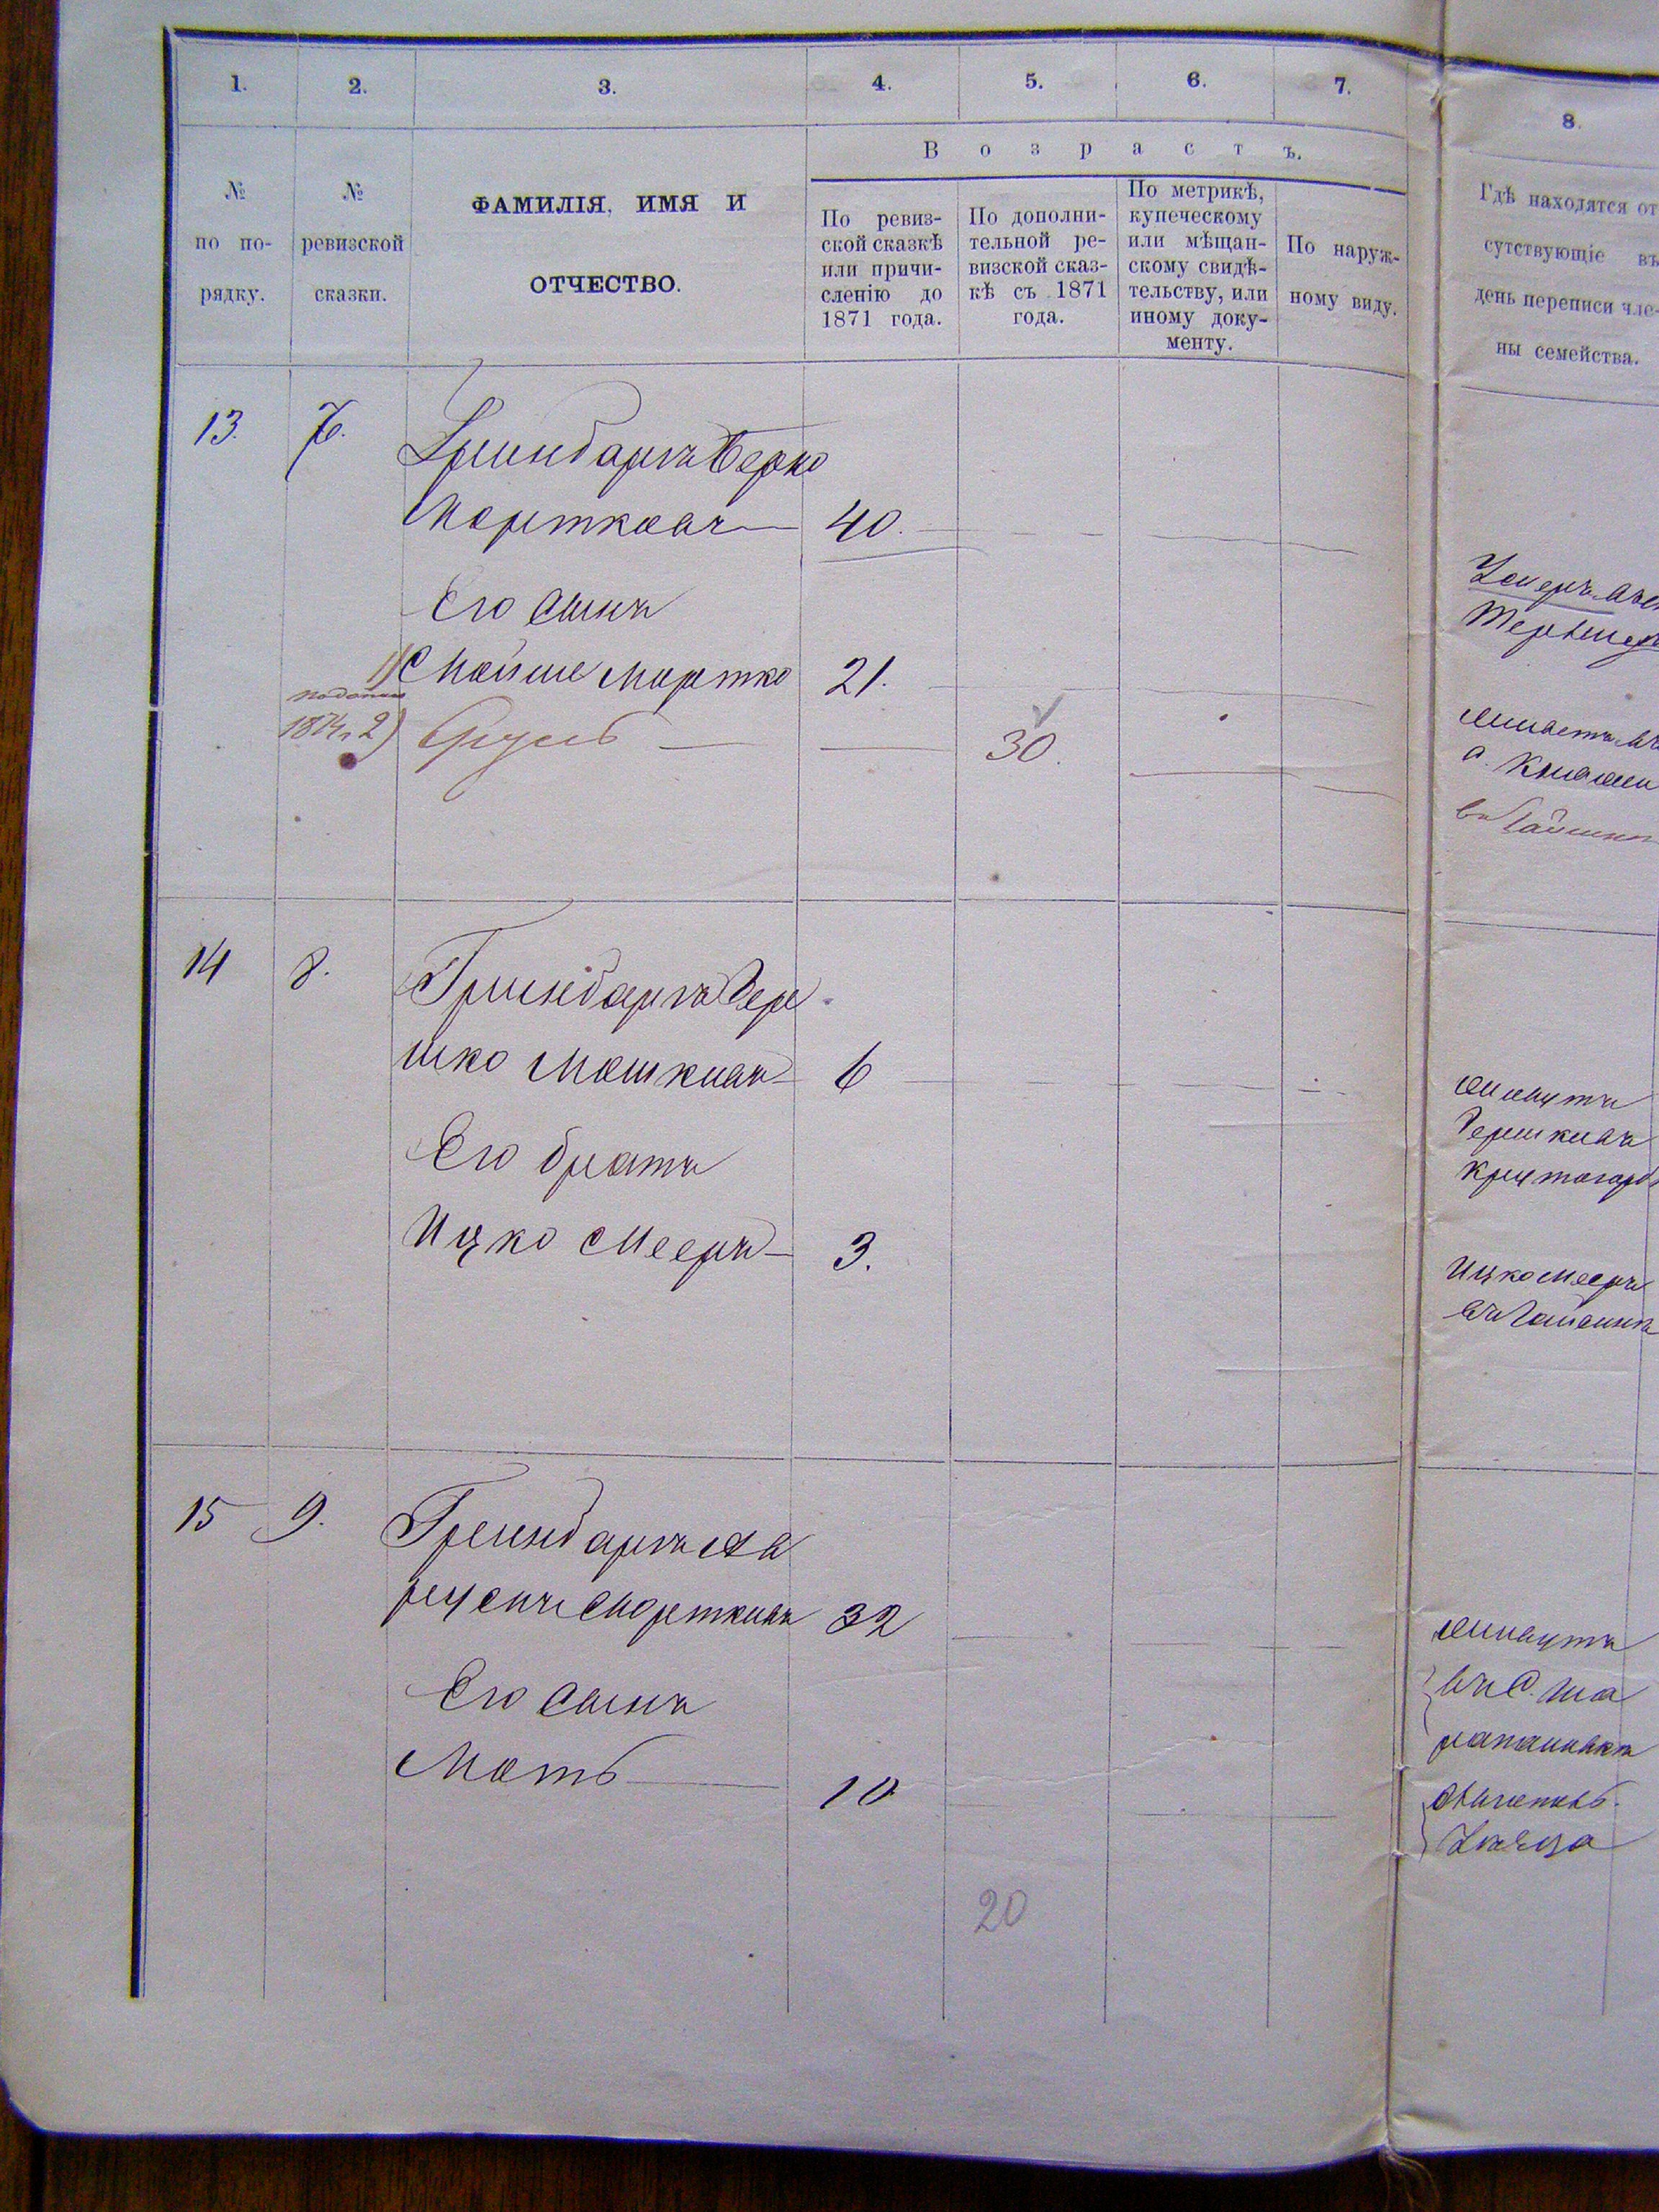 1. 2. 3. 4. 5. 6. 7. 8.
В о з р а с т ъ.
№
по по-
рядку.
№
ревизской
сказки.
ФАМИЛІЯ, ИМЯ И
ОТЧЕСТВО.
По ревиз-
ской сказкѣ
или причи-
сленію до
1871 года.
По дополни-
тельной ре-
визской сказ-
кѣ съ 1871
года.
По метрикѣ,
купеческому
или мѣщан-
скому свидѣ-
тельству, или
иному доку-
менту.
По наруж-
ному виду.
Гдѣ находятся от
сутствующіе въ
день переписи чле-
ны семейства.
13. 7. Гринбаргъ Берко
Мортковъ 40.
Его сынъ
1) Мойше Мортко 21.
1874 2) Сруль 30.
Умеръ
с.
въ
14 8. Гринбаргъ Гер
шко Мошковъ 6
Его братъ
Ицко Мееръ 3.
Гершковъ
Ицко Мееръ
въ Гайсинѣ
15 9. Гринбаргъ Ав
румъ Мортковъ 32
Его сынъ
Моть 10
20
въ с. Ша
Уѣзда